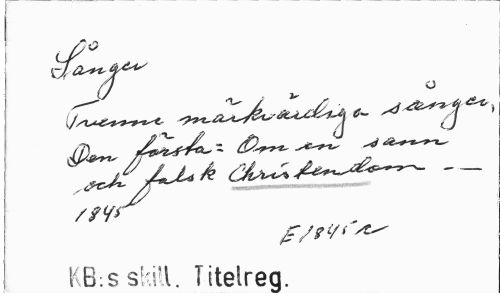 Sånger
Tvenne märkvärdiga sånger,
Den första: Om en sann
och falsk Christendom - —
1845
E 1845 r
KB:s skill. Titelreg.